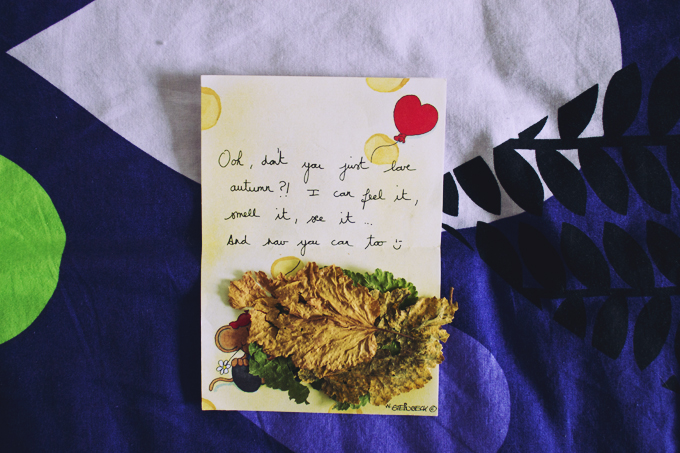 Ooh, don't you just love
autumn?! I can feel it,
smell it, see it ...
And now you can too :)